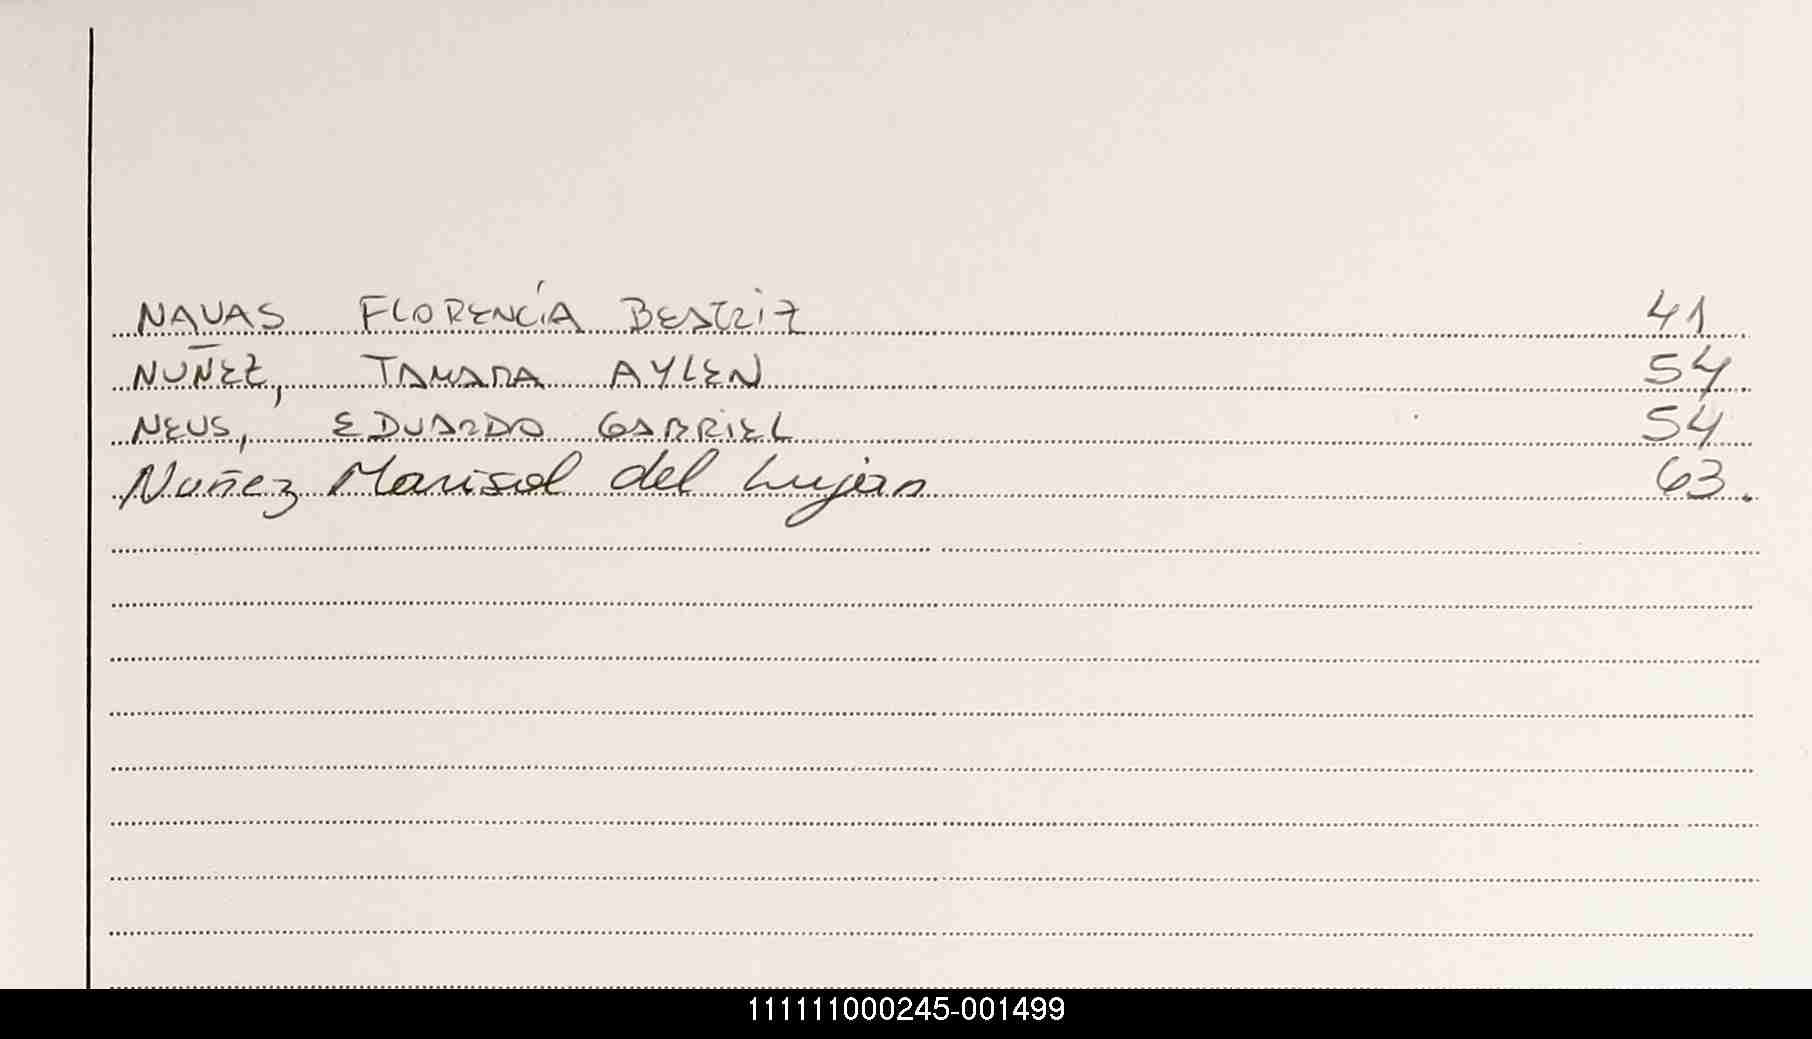 NAVAS FLORENCÍA BEATRIZ 41
NUÑEZ, TAMARA AYLEN 54.
NEUS, EDUARDO GABRIEL 54
Nuñez Marisol del Luján 63.
111111000245-001499